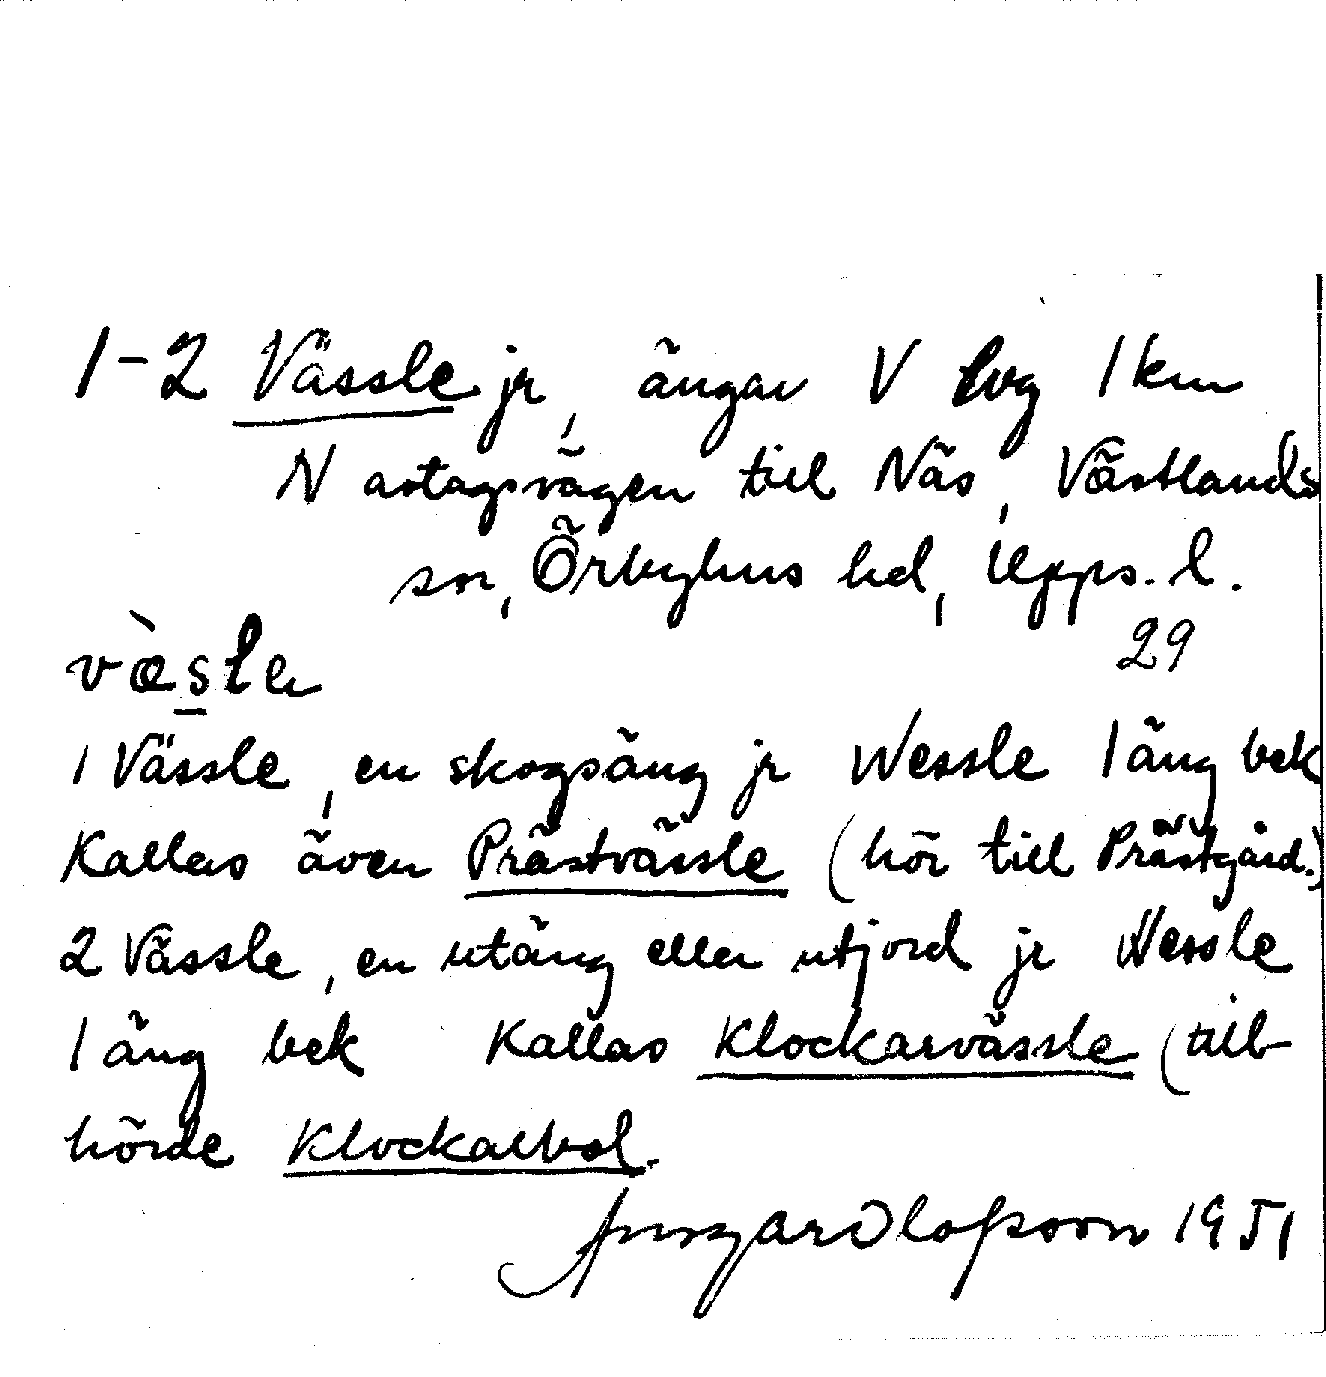 1-2 Vässle jr, ängar V lvg 1 km
N avtagsvägen till Näs, Västlands
sn, Örbyhus hd, Upps. l.
29
vӕ̀slɛ
1 Vässle, en skogsäng jr Wessle 1 äng bek
Kallas även Prästvässle (hör till Prästgård.)
2 Vässle, en utäng eller utjord jr Wessle
1 äng bek Kallas Klockarvässle (till-
hörde Klockarbol.
Ansgar Olofsson 1951